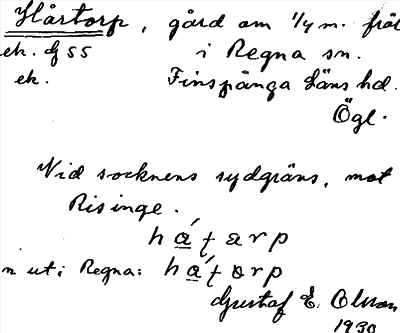 Hårtorp, gård om 1/4 m. frål
ek. g 55 i Regna sn.
ek. Finspånga Läns hd.
Ögl.
Vid socknens sydgräns, mot
Risinge.
n ut i Regna:
Gustaf E. Olsson
1930